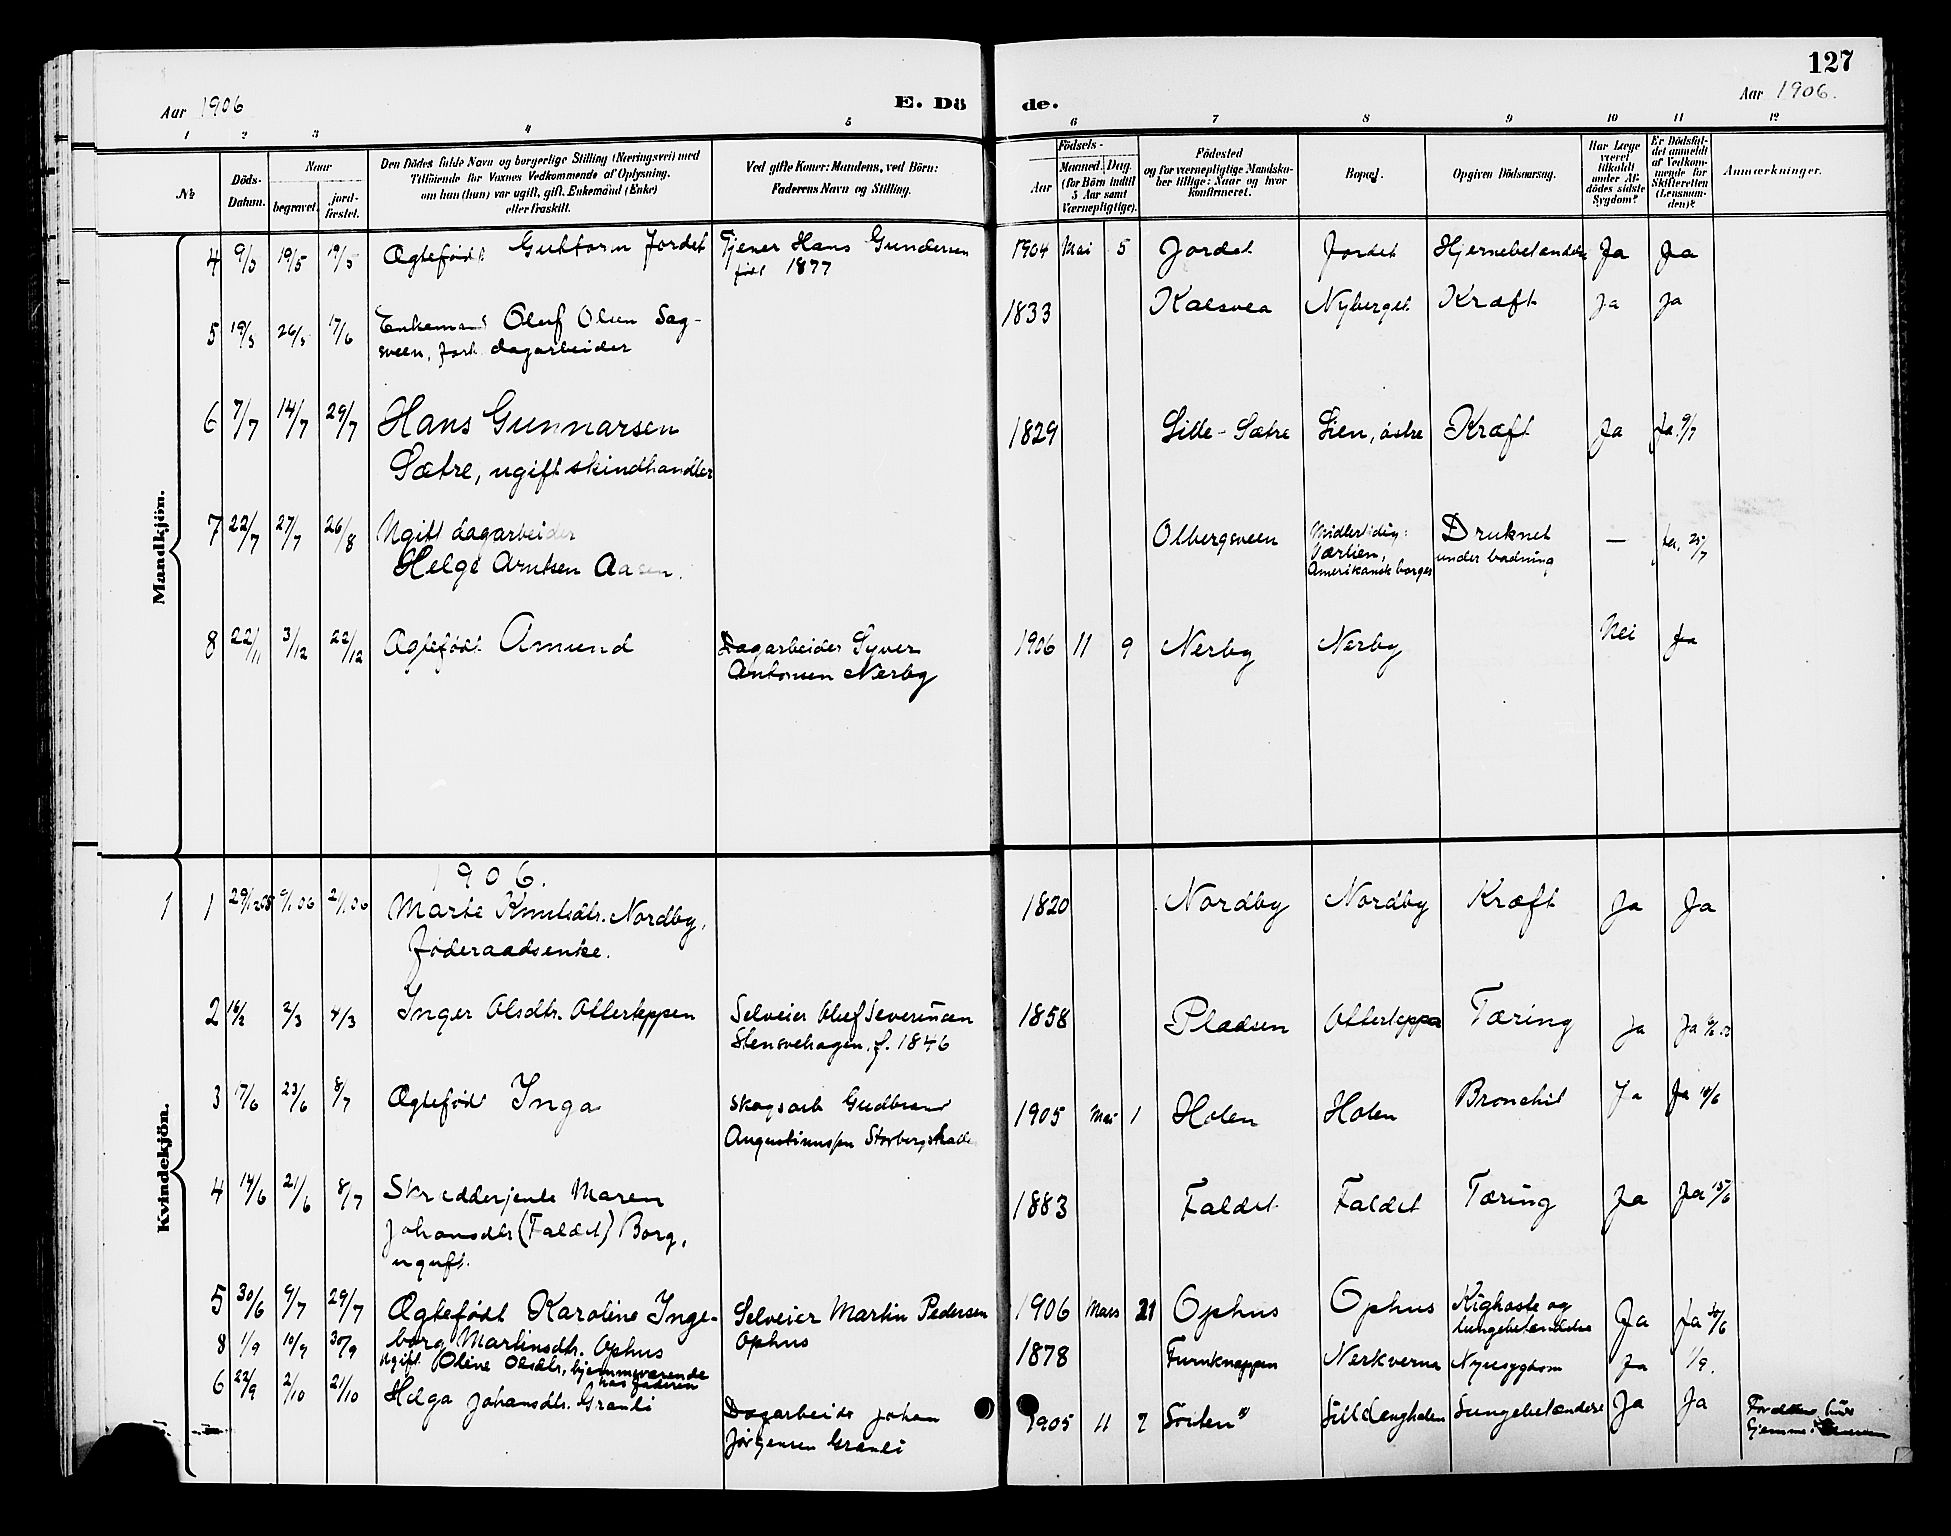 127
Aar 1906
E. Dö
de.
Aar 1906.
1 2 3 4 5 6 7 8 9 10 11 12
№
Döds-
Datum.
Naar
begravet.
jord-
fæstet.
Den Dödes fulde Navn og borgerlige Stilling (Næringsvei) med
Tilföiende for Voxnes Vedkommende af Oplysning,
om han (hun) var ugift, gift, Enkemand (Enke)
eller fraskilt.
Ved gifte Koner: Mandens, ved Börn:
Faderens Navn og Stilling.
Födsels-
Aar
Maaned. Dag.
(for Börn indtil
5 Aar samt
Værnepligtige).
Födested
og for værnepligtige Mandska-
ber tillige: Naar og hvor
konfirmeret.
Bopæl.
Opgiven Dödsaarsag.
Har Læge
været
tilkaldt
under Af-
dödes sidste
Sygdom?
Er Dödsfal-
det anmeldt
af Vedkom-
mende for
Skifteretten
(Lensman-
den)?
Anmærkninger.
Mandkjön.
4 19/5 19/5 Ægtefødt Guttorm Jordet Tjener Hans Gundersen 1904 Mai 5 Jordet Jordet Hjernebetændelse Ja Ja
født 1877
5 19/5 26/5 17/6 Enkemand Oluf Olsen Sag- 1833 Kalsvea Nyberget Kræft Ja Ja
sveen, dagarbeider
6 7/7 14/7 29/7 Hans Gunnarsen 1829 Lille-Sætre Lien, østre Kræft Ja Ja 9/7
Sætre, ugift skindhandler
7 22/7 27/7 26/8 Ugift dagarbeider Olbergsveen Midlertidig: Druknet — Ja, 25/7
Helge Arntsen Aasen. Værlien, under badning
Amerikansk borger
8 22/11 3/12 22/12 Ægtefødt Amund Dagarbeider Syver 1906 11 9 Nerby Nerby Nei Ja
Antonsen Nerby
Kvindekjön.
1906.
1 1 29/12 05 9/1 06 21/1 06 Marte Knutsdtr. Nordby, 1820 Nordby Nordby Kræft Ja Ja
føderaadsenke.
2 16/2 2/3 4/3 Inger Olsdtr. Otterkppen Selveier Oluf Severinsen 1858 Pladsen Tæring Ja Ja
Stensvehagen, f. 1846
3 17/6 23/6 8/7 Ægtefødt Inga Skogsarb Gudbrand 1905 Mai 1 Holen Holen Bronchit Ja Ja 18/6
Augustinussen
4 14/6 21/6 8/7 Skrædderjente Maren 1883 Faldet Faldet Tæring Ja Ja 15/6
Johansdtr (Faldet) Borg,
ugift.
5 30/6 9/7 29/7 Ægtefødt Karoline Inge- Selveier Martin Pedersen 1906 Mars 21 Ophus Ophus Kighoste og Ja Ja 30/6
borg Martinsdtr. Ophus Ophus lungebetændelse
8 1/9 10/9 30/9 Ugift Oline Olsdtr, hjemmeværende 1878 Furuknappen Nerkverna Nyresygdom Ja 1/9.
hos faderen
6 22/9 2/10 21/10 Helga Johansdtr. Granli Dagarbeider Johan 1905 11 7 Lungebetændelse Ja Ja
Jørgensen Granli